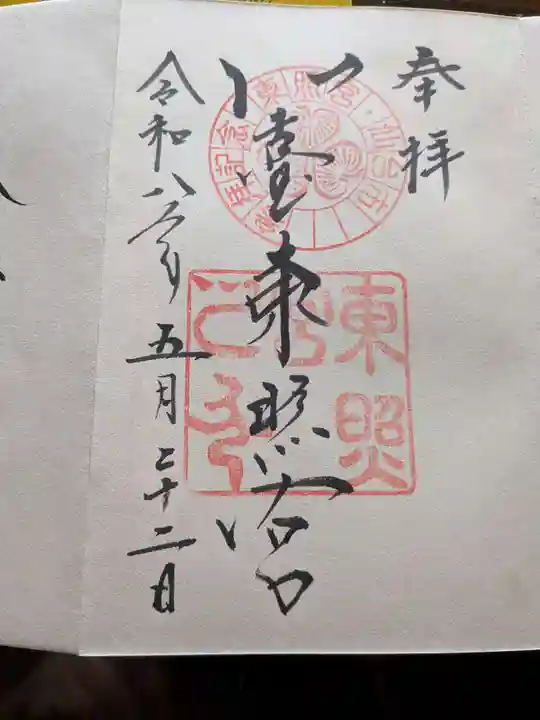 奉拝
仙臺東照宮
令和八年五月二十二日
東照宮